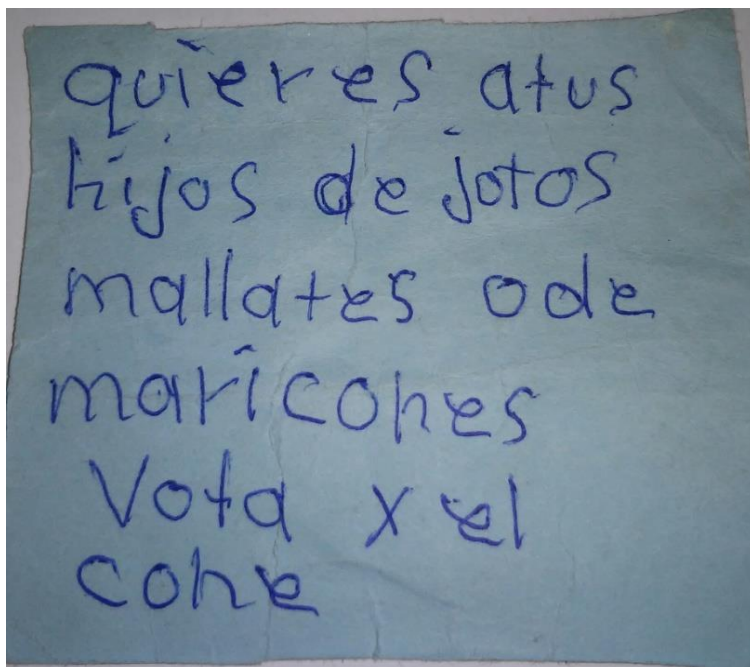 quieres atus
hijos de jotos
mallates ode
maricones
Vota x el
cone